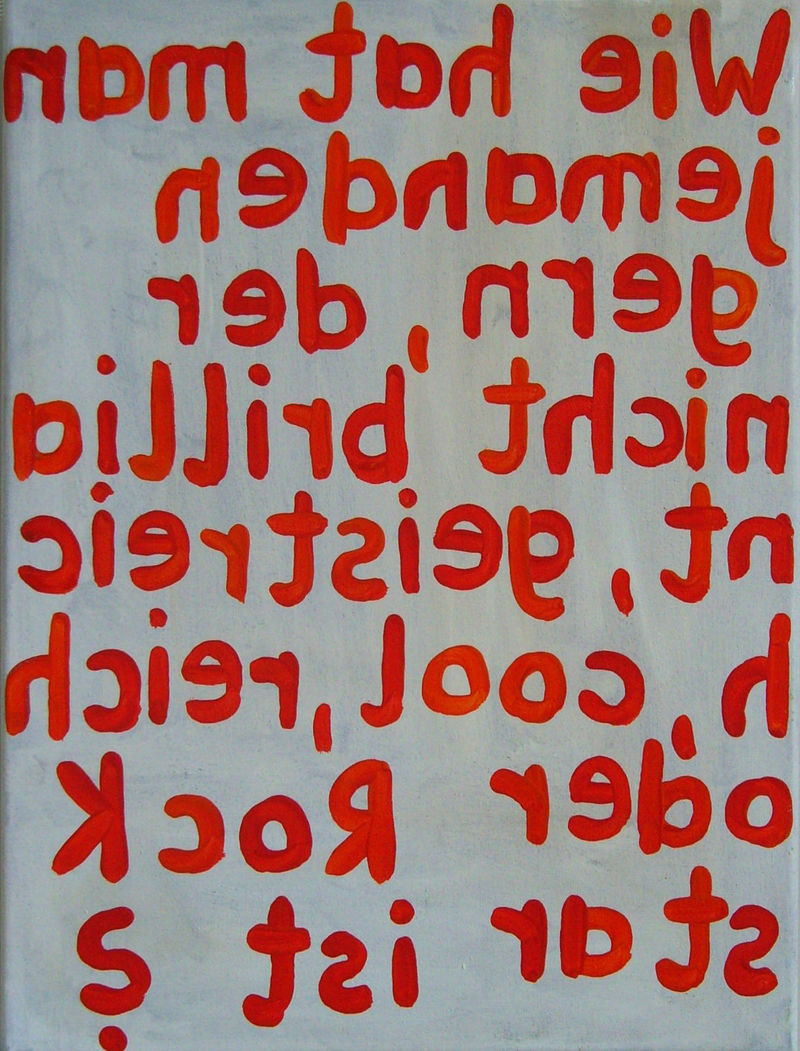 Wie hat man
jemanden
gern, der
nicht brillia
nt, geistreic
h, cool, reich
oder Rock
star ist ?